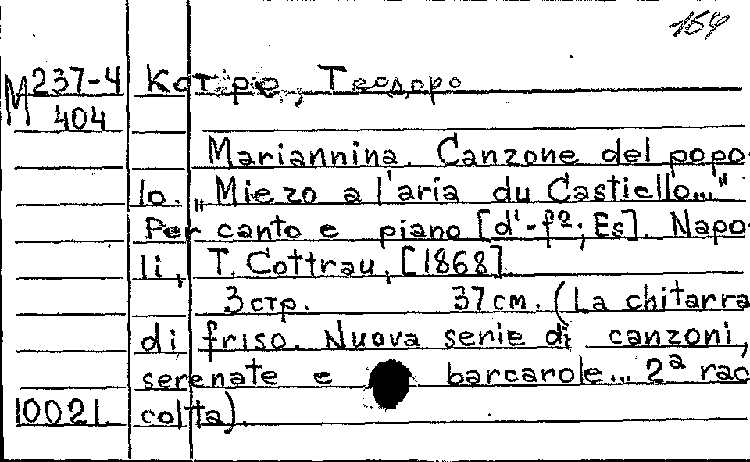 164
М 237-4 Котро, Теодоро
404
Mariannina. Canzone del popo-
lo. „Miezo a l'aria du Castiello..."
Per canto e piano [d¹-f²; Es]. Napo-
li, T. Cottrau, [1868]
3 стр. 37 см. (La chitarra
di friso. Nuova serie di canzoni,
serenate e barcarole... 2ª rac
10021 colta).